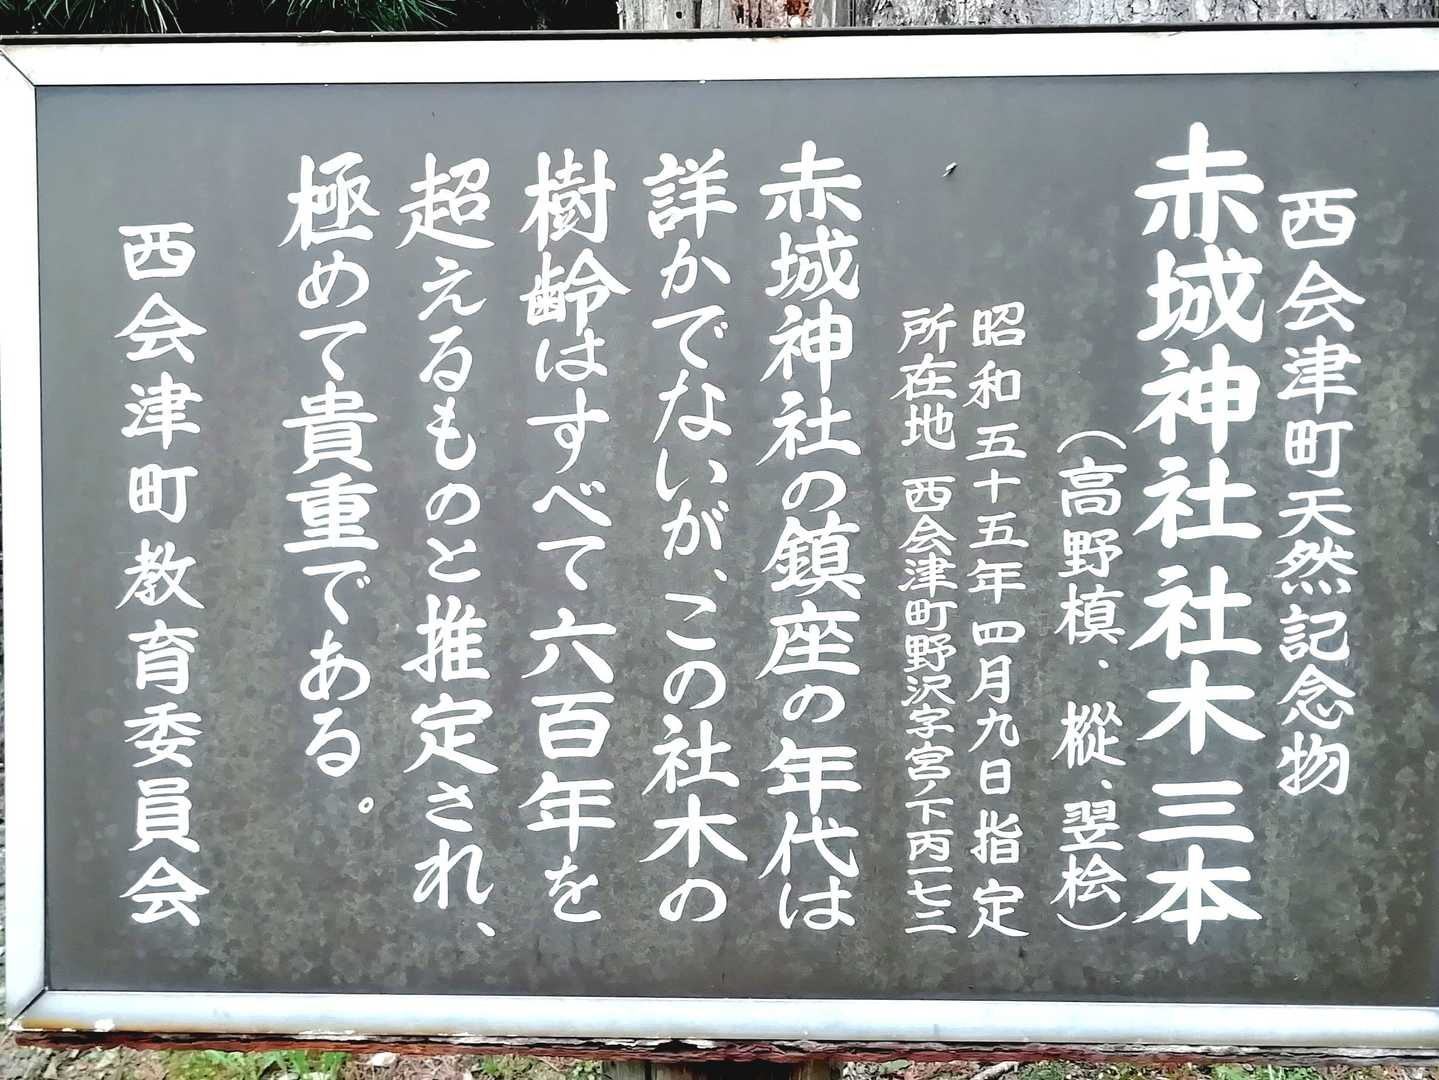 西会津町天然記念物
赤城神社社木三本
（高野槙、樅、翌桧）
昭和五十五年四月九日指定
所在地 西会津町野沢字宮ノ下丙一七二
赤城神社の鎮座の年代は
詳かでないが、この社木の
樹齢はすべて六百年を
超えるものと推定され、
極めて貴重である。
西会津町教育委員会